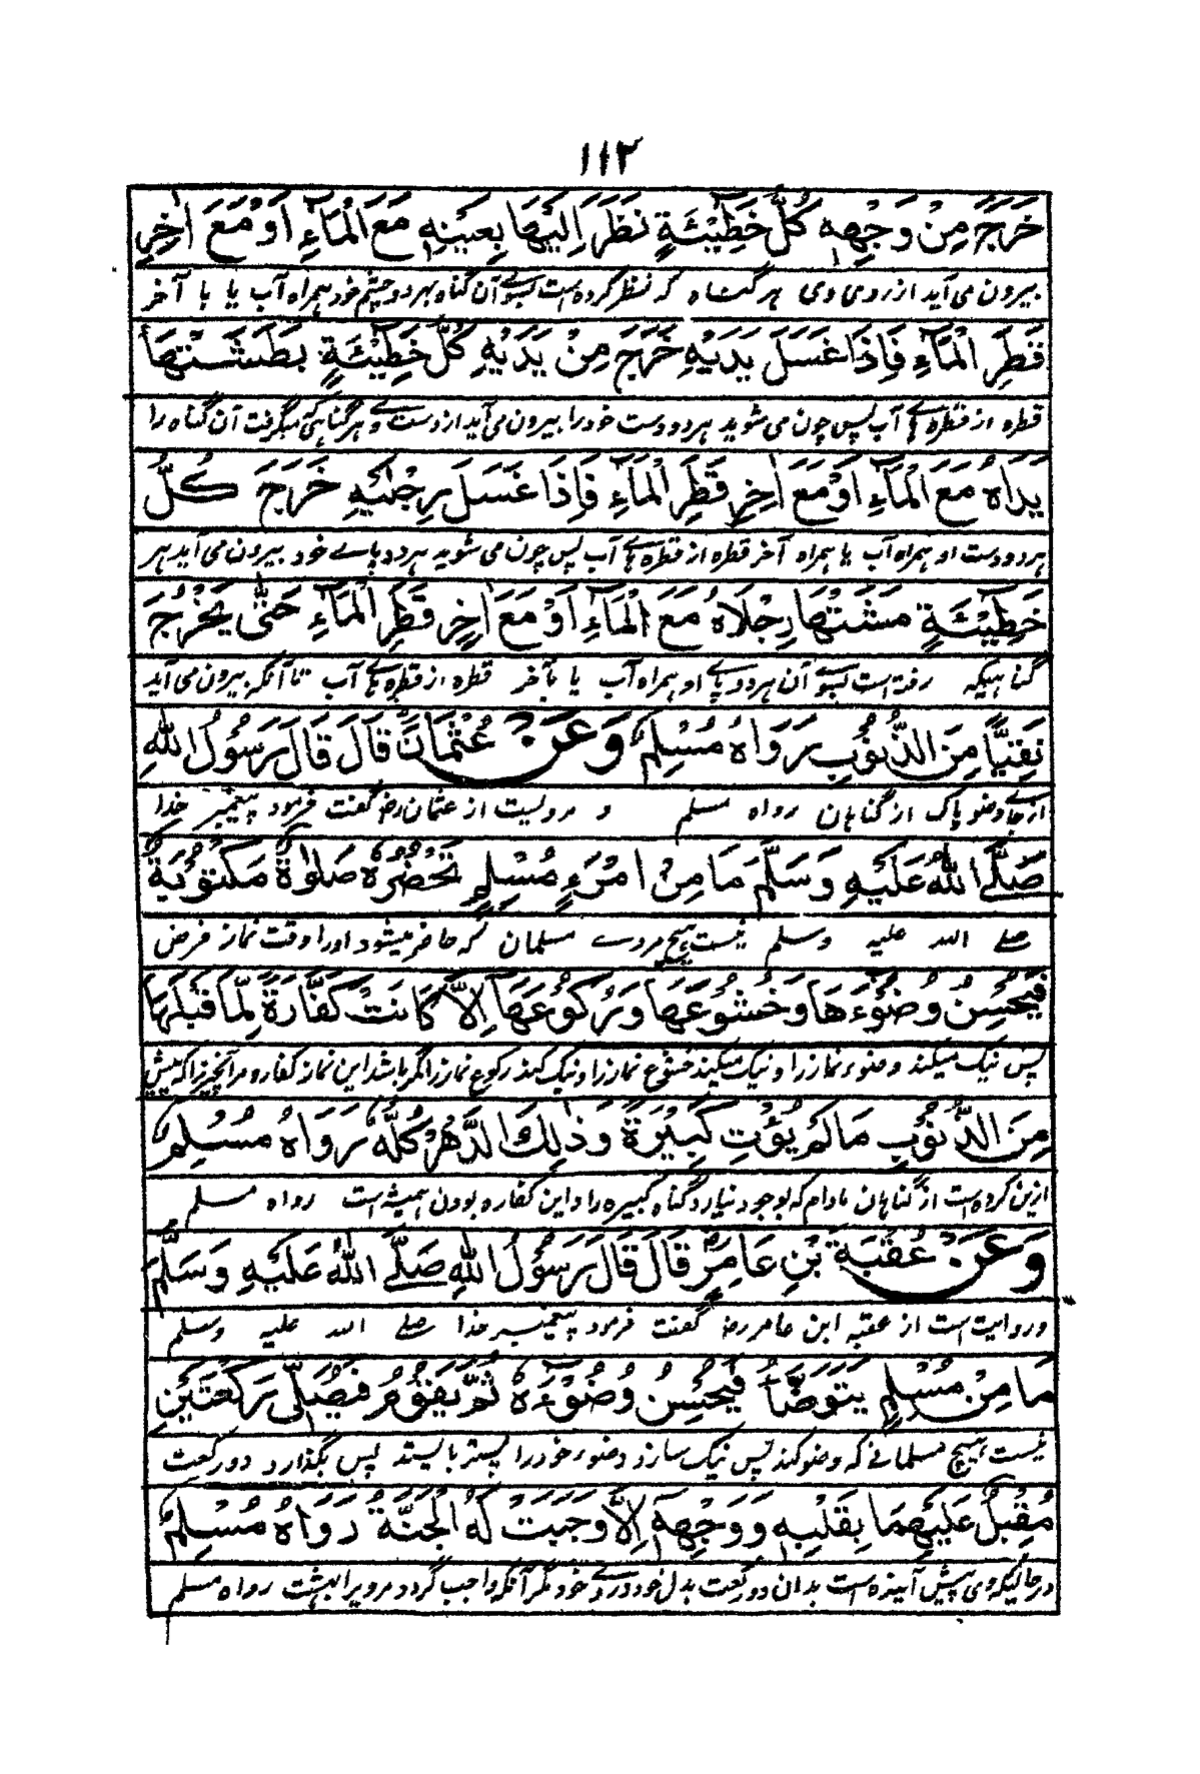 ۱۱۲
خَرَجَ مِنْ وَجْهِهٖ كُلُّ خَطِيْئَةٍ نَظَرَ اِلَيْهَا بِعَيْنِهٖ مَعَ الْمَآءِ اَوْ مَعَ اٰخِرِ
بیرون می آید از روی وی هر گناه که نظر کرده است بسوے آن گناه بهر دو چشم خود همراه آب یا با آخر
قَطْرِ الْمَآءِ فَاِذَا غَسَلَ يَدَيْهِ خَرَجَ مِنْ يَدَيْهِ كُلُّ خَطِيْئَةٍ بَطَشَتْهَا
قطره از قطره ہاے آب پس چون می شوید هر دو دست خود را بیرون می آید از دستے و هر گناہی کہ میگرفت آن گناه را
يَدَاهُ مَعَ الْمَآءِ اَوْ مَعَ اٰخِرِ قَطْرِ الْمَآءِ فَاِذَا غَسَلَ رِجْلَيْهِ خَرَجَ كُلُّ
هر دو دست او همراه آب یا همراه آخر قطره از قطره ہاے آب پس چون می شوید هر دو پاے خود بیرون می آید هر
خَطِيْئَةٍ مَشَتْهَا رِجْلَاهُ مَعَ الْمَآءِ اَوْ مَعَ اٰخِرِ قَطْرِ الْمَآءِ حَتّٰى يَخْرُجَ
گناہیکہ رفته است بسوے آن هر دو پاے او همراه آب یا بآخر قطره از قطره ہاے آب تا آنکه بیرون می آید
نَقِيًّا مِنَ الذُّنُوْبِ رَوَاهُ مُسْلِمٌ وَعَنْ عُثْمَانَ قَالَ قَالَ رَسُوْلُ اللّٰهِ
از جاے وضو پاک از گناہان رواه مسلم و مرویست از عثمان رضہ گفت فرمود پیغمبر خدا
صَلَّى اللّٰهُ عَلَيْهِ وَسَلَّمَ مَا مِنْ امْرَءٍ مُسْلِمٍ تَحْضُرُهٗ صَلٰوةٌ مَكْتُوْبَةٌ
صلے الله علیه وسلم نیست ہیچ مردے مسلمان که حاضر میشود او را وقت نماز فرض
فَيُحْسِنُ وُضُوْءَهَا وَخُشُوْعَهَا وَرُكُوْعَهَا اِلَّا كَانَتْ كَفَّارَةً لِمَا قَبْلَهَا
پس نیک میکند وضوء نماز را و نیک میکند خشوع نماز را و نیک کند رکوع نماز را مگر باشد این نماز کفاره مر آنچیز را که پیش
مِنَ الذُّنُوْبِ مَا لَمْ يُؤْتِ كَبِيْرَةً وَذٰلِكَ الدَّهْرَ كُلَّهٗ رَوَاهُ مُسْلِمٌ
ازین کرده است از گناہان مادام که بوجود نیارد گناه کبیره را و این کفاره بودن همیشه است رواه مسلم
وَعَنْ عُقْبَةَ بْنِ عَامِرٍ قَالَ قَالَ رَسُوْلُ اللّٰهِ صَلَّى اللّٰهُ عَلَيْهِ وَسَلَّمَ
و روایت است از عقبه ابن عامر رضہ گفت فرمود پیغمبر خدا صلے الله علیه وسلم
مَا مِنْ مُسْلِمٍ يَتَوَضَّأُ فَيُحْسِنُ وُضُوْءَهٗ ثُمَّ يَقُوْمُ فَيُصَلِّى رَكْعَتَيْنِ
نیست ہیچ مسلمانے که وضو کند پس نیک سازد وضوء خود را پستر بایستد پس بگذارد دو رکعت
مُقْبِلٌ عَلَيْهِمَا بِقَلْبِهٖ وَوَجْهِهٖ اِلَّا وَجَبَتْ لَهُ الْجَنَّةُ رَوَاهُ مُسْلِمٌ
در حالیکه وی پیش آینده است بدان دو رکعت بدل خود و روے خود مگر آنکه واجب گردد مرو یرا بهشت رواه مسلم